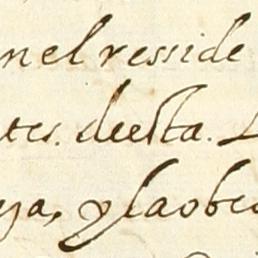 nel resside
tes. deesta.
ya, y laobe